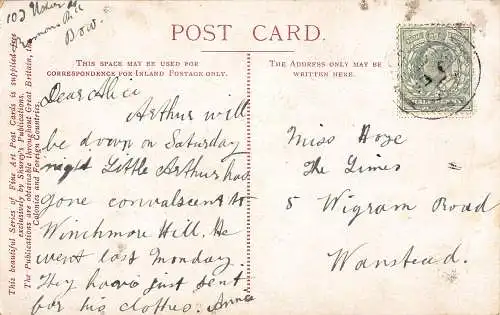 103
Bow.
POST CARD.
THIS SPACE MAY BE USED FOR
CORRESPONDENCE FOR INLAND POSTAGE ONLY.
THE ADDRESS ONLY MAY BE
WRITTEN HERE.
This beautiful Series of Fine Art Post Cards is supplied free
exclusively by Shurey's Publications.
The Publications are obtainable throughout Great Britain, the
Colonies and Foreign Countries.
Dear Alice
Arthur will
be down on Saturday
night Little Arthur has
gone convalscent to
Winchmore Hill. He
went last Monday.
They have just sent
for his clothes. Annie
Miss Hoze
The Limes
5 Wigram Road
Wanstead.